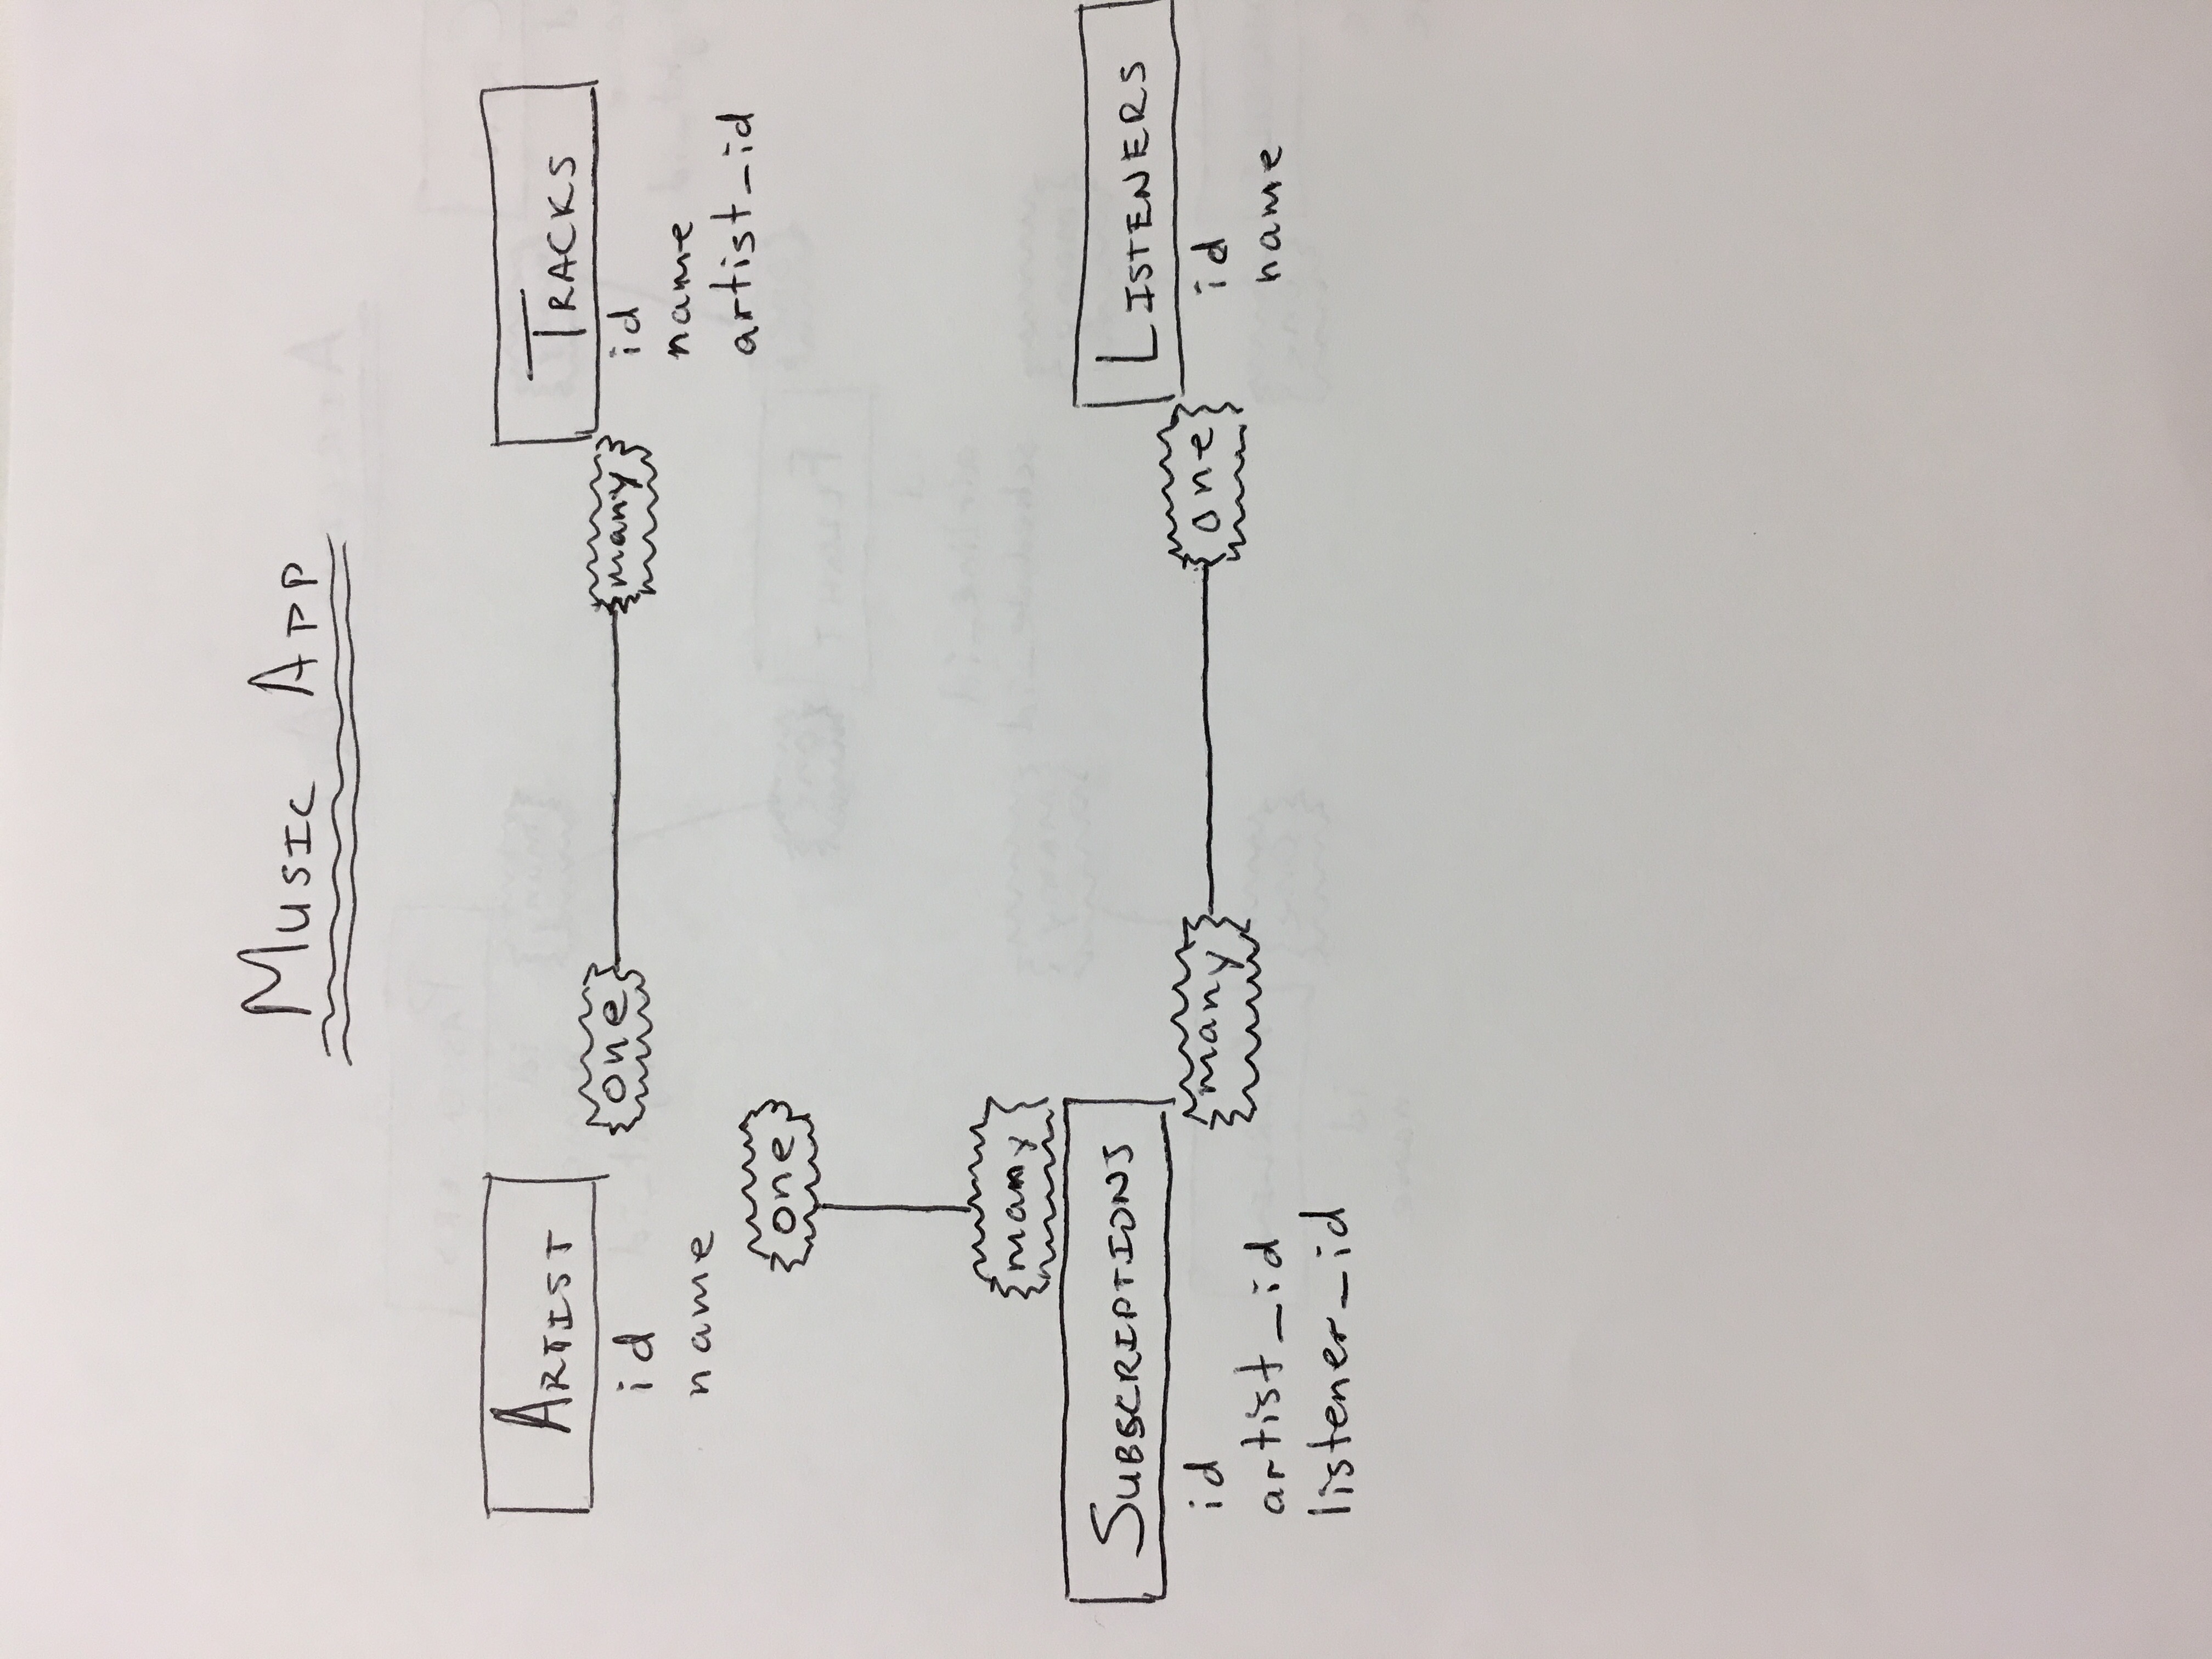 Music App
Artist
id
name
one
many
Tracks
id
name
artist_id
one
many
Subscriptions
id
artist_id
listener_id
many
one
Listeners
id
name